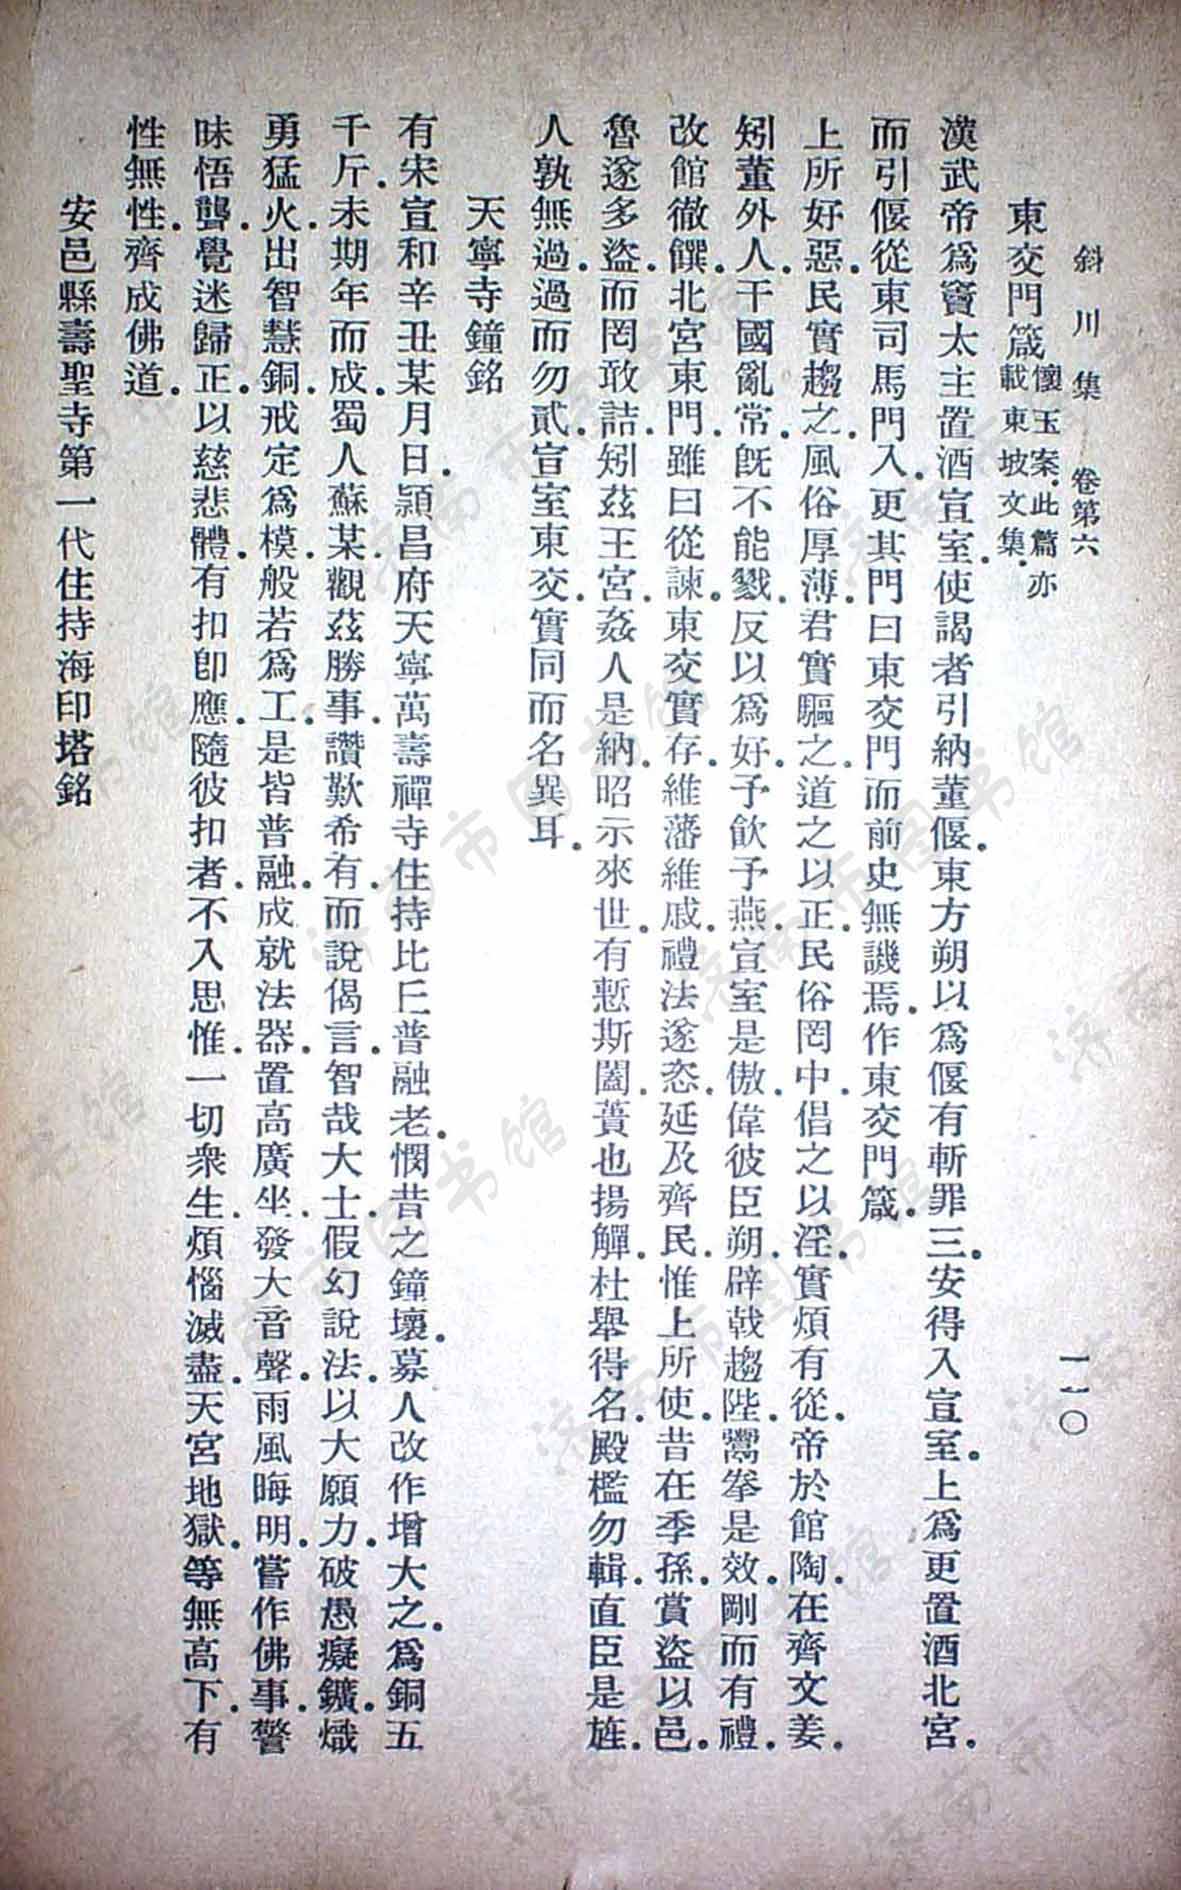 斜川集 卷第六 一一〇
東交門箴 懷玉案.此篇亦載東坡文集.
漢武帝爲竇太主置酒宣室.使謁者引納董偃.東方朔以爲偃有斬罪三.安得入宣室.上爲更置酒北宮.
而引偃從東司馬門入.更其門曰東交門而前史無譏焉.作東交門箴.
上所好惡.民實趨之.風俗厚薄.君實驅之.道之以正.民俗罔中.倡之以淫.實煩有從.帝於館陶.在齊文姜.
矧董外人.干國亂常.旣不能戮.反以爲好.予飮予燕.宣室是傲.偉彼臣朔.辟戟趨陛.鬻拳是效.剛而有禮.
改館徹饌.北宮東門.雖曰從諫.東交實存.維藩維戚.禮法遂恣.延及齊民.惟上所使.昔在季孫.賞盜以邑.
魯遂多盜.而罔敢詰.矧茲王宮.姦人是納.昭示來世.有慙斯闔.蕢也揚觶.杜舉得名.殿檻勿輯.直臣是旌.
人孰無過.過而勿貳.宣室東交.實同而名異耳.
天寧寺鐘銘
有宋宣和辛丑某月日.潁昌府天寧萬壽禪寺住持比丘普融老.憫昔之鐘壞.募人改作增大之.爲銅五
千斤.未期年而成.蜀人蘇某.觀茲勝事.讚歎希有.而說偈言.智哉大士.假幻說法.以大願力.破愚癡鑛.熾
勇猛火.出智慧銅.戒定爲模.般若爲工.是皆普融.成就法器.置高廣坐.發大音聲.雨風晦明.嘗作佛事.警
昧悟聾.覺迷歸正.以慈悲體.有扣卽應.隨彼扣者.不入思惟.一切衆生.煩惱滅盡.天宮地獄.等無高下.有
性無性.齊成佛道.
安邑縣壽聖寺第一代住持海印塔銘